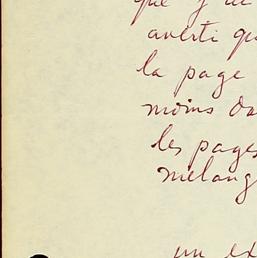 que j'ai
averti qu
la page
moins da
les pages
mélang
un ex